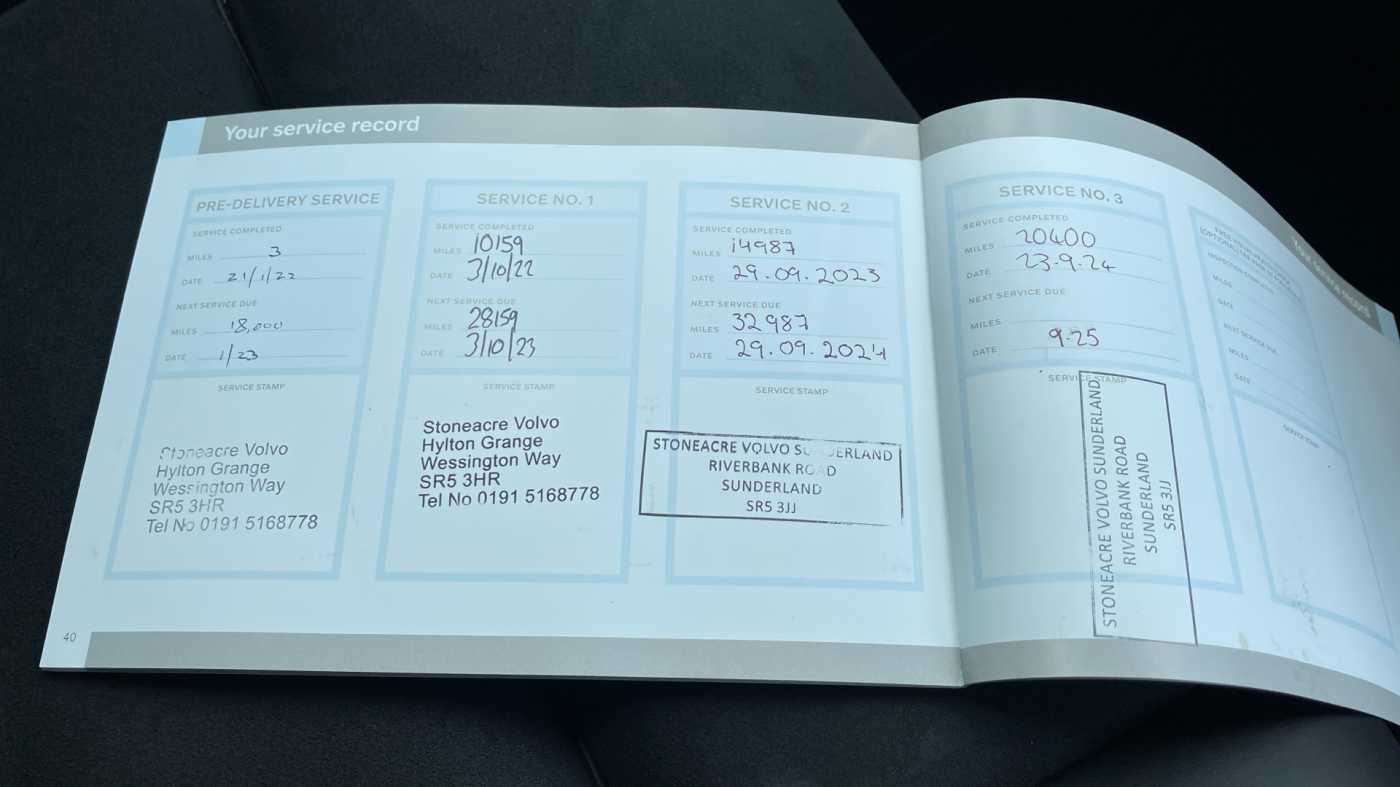 Your service record
PRE-DELIVERY SERVICE
SERVICE COMPLETED
MILES 3
DATE 21/1/22
NEXT SERVICE DUE
MILES 18,000
DATE 1/23
SERVICE STAMP
Stoneacre Volvo
Hylton Grange
Wessington Way
SR5 3HR
Tel No 0191 5168778
SERVICE NO. 1
SERVICE COMPLETED
MILES 10159
DATE 3/10/22
NEXT SERVICE DUE
MILES 28159
DATE 3/10/23
SERVICE STAMP
Stoneacre Volvo
Hylton Grange
Wessington Way
SR5 3HR
Tel No 0191 5168778
SERVICE NO. 2
SERVICE COMPLETED
MILES 14987
DATE 29.09.2023
NEXT SERVICE DUE
MILES 32987
DATE 29.09.2024
SERVICE STAMP
STONEACRE VOLVO SUNDERLAND
RIVERBANK ROAD
SUNDERLAND
SR5 3JJ
SERVICE NO. 3
SERVICE COMPLETED
MILES 20400
DATE 23.9.24
NEXT SERVICE DUE
MILES
DATE 9.25
SERVICE STAMP
STONEACRE VOLVO SUNDERLAND
RIVERBANK ROAD
SUNDERLAND
SR5 3JJ
Your service record
MILES
DATE
NEXT SERVICE DUE
MILES
DATE
SERVICE STAMP
40